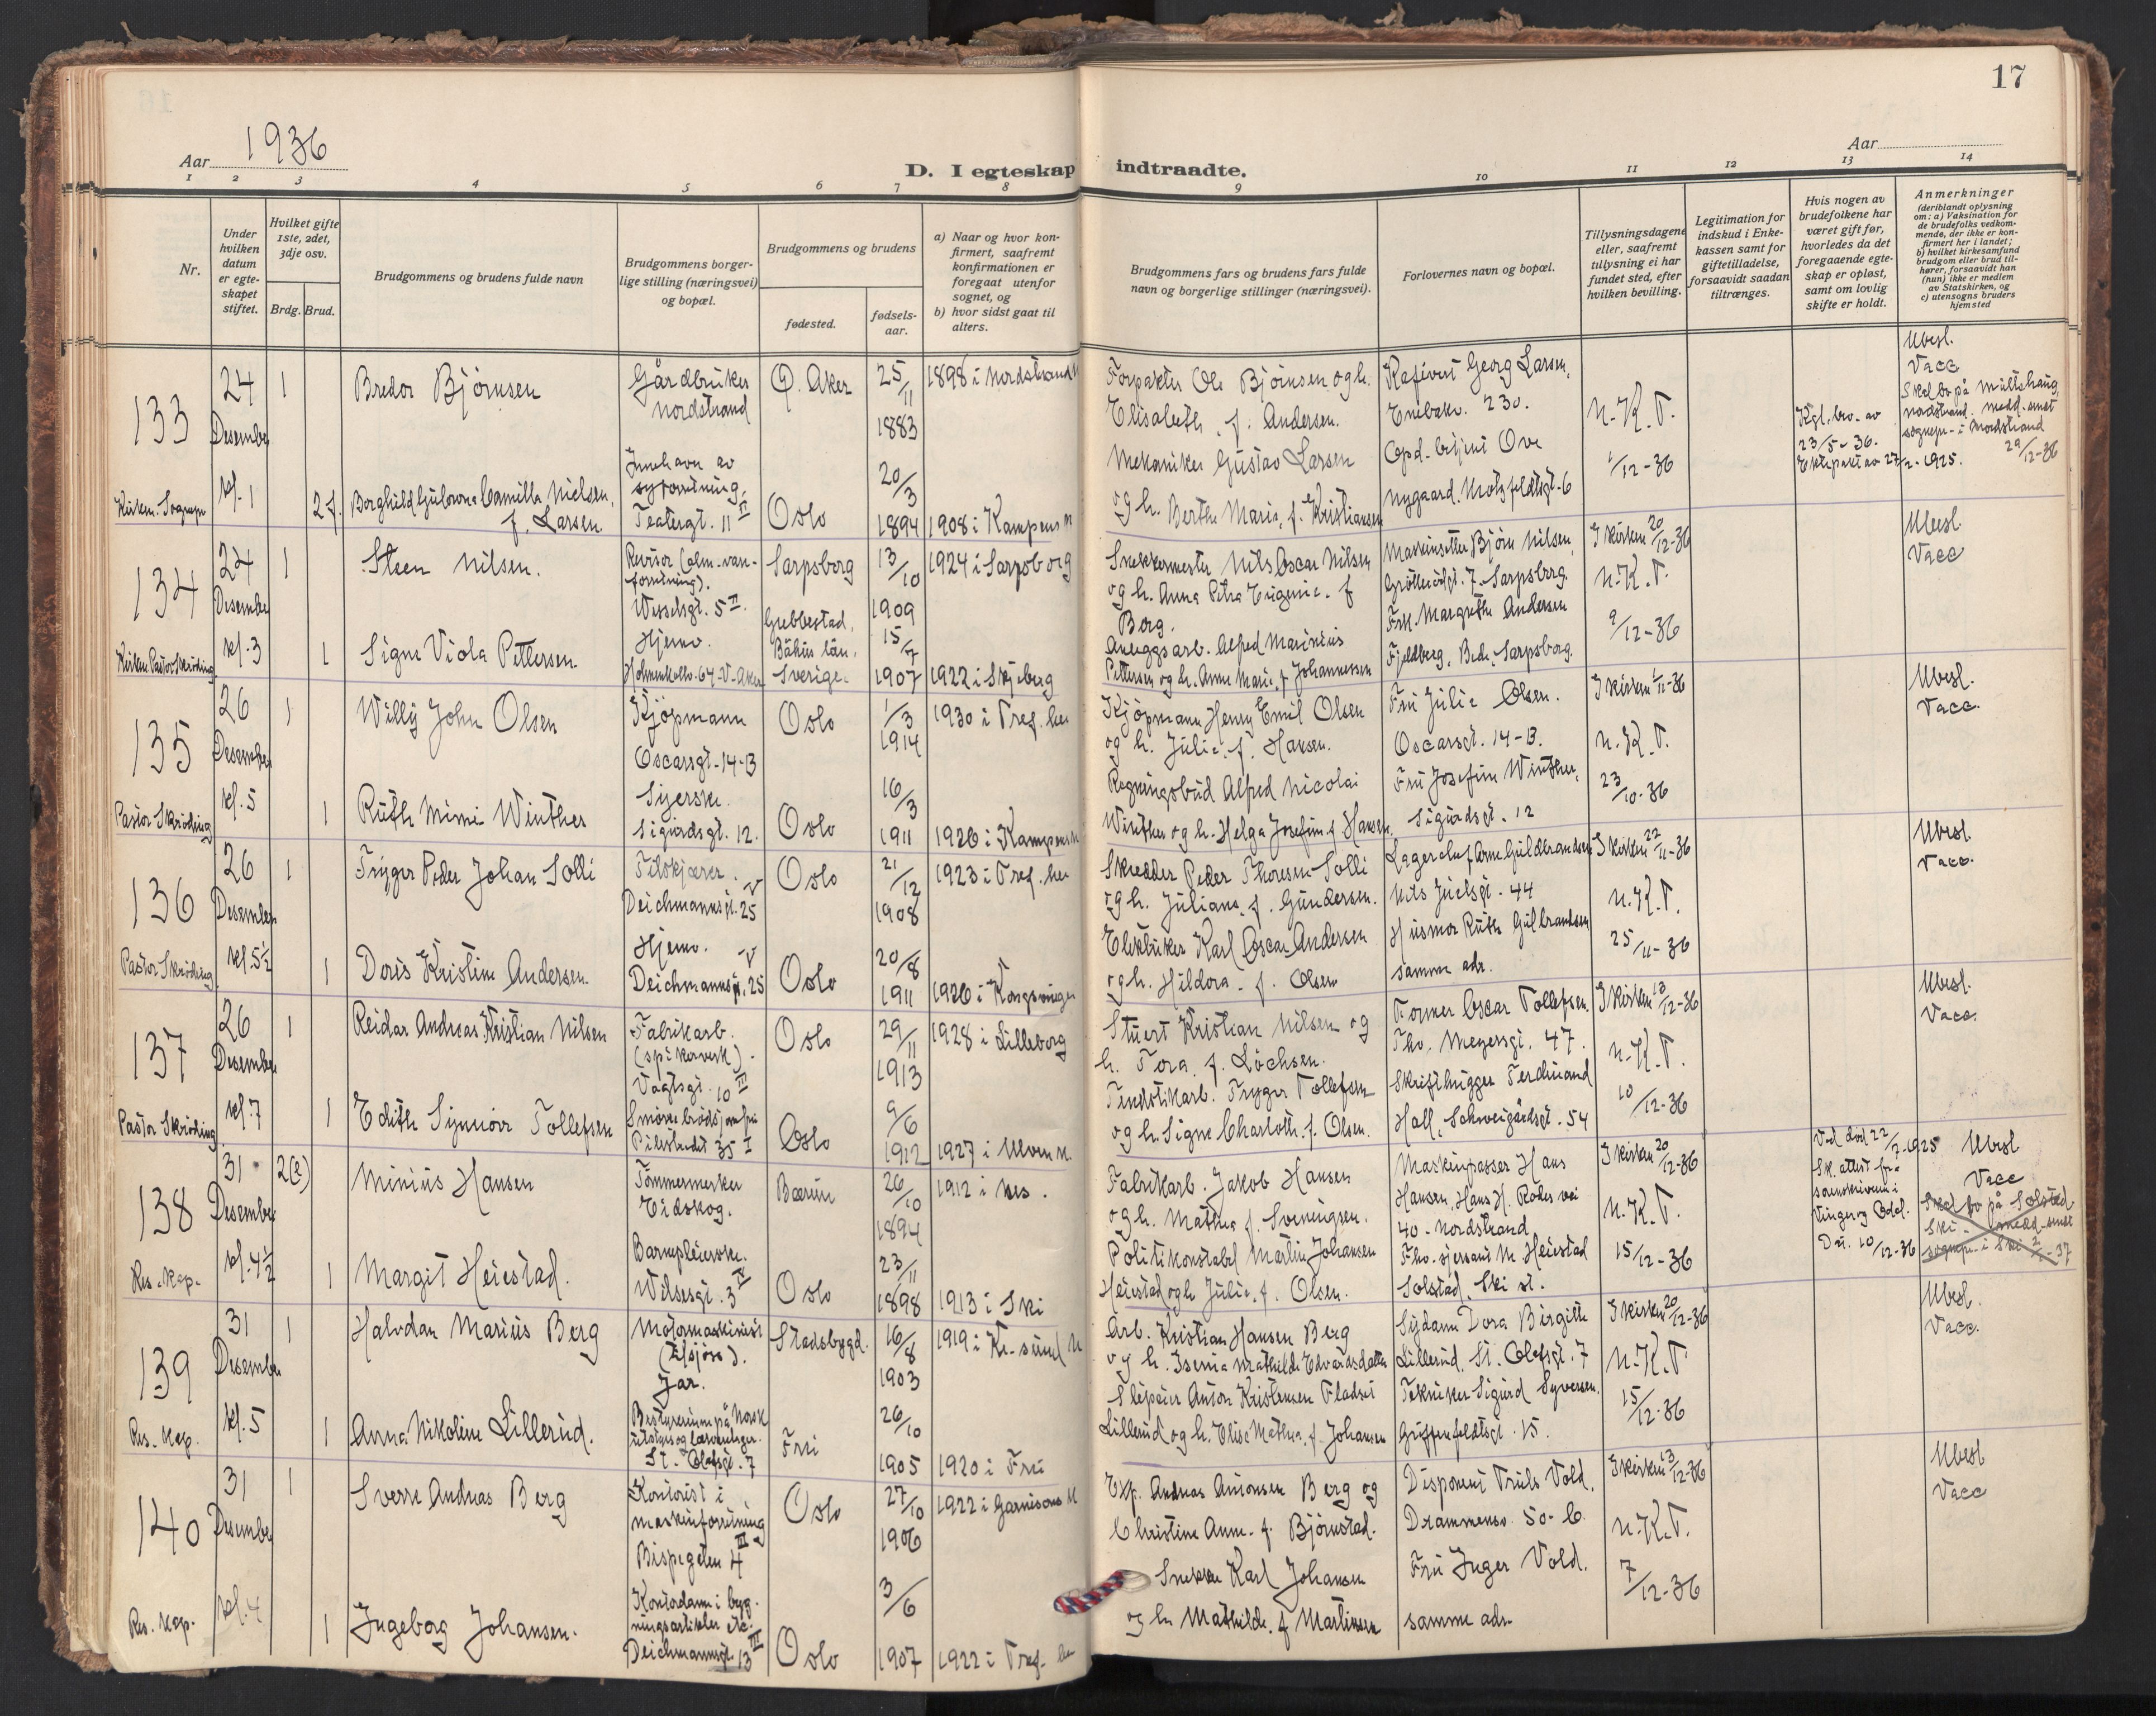 17
Aar 1936
D. I egteskap indtraadte.
Aar
1 2 3 4 5 6 7 8 9 10 11 12 13 14
Nr.
Under hvilken datum er egte-skapet stiftet.
Hvilket gifte 1ste, 2det, 3dje osv.
Brdg. Brud.
Brudgommens og brudens fulde navn
Brudgommens borger-
lige stilling (næringsvei)
og bopæl.
Brudgommens og brudens
fødested.
fødsels-
aar.
a) Naar og hvor kon-
firmert, saafremt
konfirmationen er
foregaat utenfor
sognet, og
b) hvor sidst gaat til
alters.
Brudgommens fars og brudens fars fulde
navn og borgerlige stillinger (næringsvei).
Forlovernes navn og bopæl.
Tillysningsdagene
eller, saafremt
tillysning ei har
fundet sted, efter
hvilken bevilling.
Legitimation for
indskud i Enke-
kassen samt for
giftetilladelse,
forsaavidt saadan
tiltrænges.
Hvis nogen av
brudefolkene har
været gift før,
hvorledes da det
foregaaende egte-
skap er opløst,
samt om lovlig
skifte er holdt.
Anmerkninger
(deriblandt oplysning
om: a) Vaksination for
de brudefolks vedkom-
mende, der ikke er kon-
firmert her i landet;
b) hvilket kirkesamfund
brudgom eller brud til-
hører, forsaavidt han
(hun) ikke er medlem
av Statskirken, og
c) utensogns bruders
hjemsted
133
24 Desember kl. 1
1
Bredor Bjørnsen
Gårdbruker
Nordstrand
Ø. Aker
25/11 1883
1898 i Nordstrand k
Forpakter Ole Bjørnsen og h.
Elisabeth, f. Andersen.
Kafévert Georg Larsen,
Enebakv. 230.
N.K.T.
1/12-36
Kgl. brv. av
23/5-36.
Ektepakt av 27/2-1925.
Ubesl.
Vacc
Nordstrand
29/12-36
2 f.
Borghild Camilla Nielsen,
f. Larsen
Innehaver av
syforretning,
Teatergt. 11 II
Oslo
20/3 1894
1908 i Kampens k
Mekaniker Gustav Larsen
og h. Berthe Marie, f. Kristiansen
Opd. betjent Ove
Nygaard. Motzfeldtsgt. 6
134
24 Desember kl. 3
1
Steen Nilsen.
Revisor
Wesselsgt. 5 II.
Sarpsborg
13/10 1909
1924 i Sarpsborg
Snekkermester Nils Oscar Nilsen
og h. Anna Petra Eugenie. f
Berg.
Maskinsetter Bjørn Nilsen,
7. Sarpsborg.
I kirken 20/12-36
N.K.T.
9/12-36
Ubesl.
Vacc
1
Signe Viola Pettersen
Hjemv.
Holmenkollv. 64 - V. Aker
Grebbestad,
Bohus län,
Sverige.
15/7 1907
1922 i Skjeberg
Anleggsarb. Alfred Marinius
Pettersen og h. Anne Marie, f Johannessen
Frk. Margrethe Andersen
Fjeldberg, Sarpsborg.
135
26 Desember kl. 5
Pastor Skrøding
1
Willy John Olsen
Kjøpmann
Oscarsgt. 14-B
Oslo
1/3 1914
1930 i Tref. her
Kjøpmann Henry Emil Olsen
og h. Julie, f. Hansen.
Fru Julie Olsen.
Oscarsgt. 14-B.
I kirken 1/11-36
N.K.T.
23/10-36
Ubesl.
Vacc.
1
Ruth Mimi Winther
Syerske.
Sigurdsgt. 12.
Oslo
16/3 1911
1926 i Kampens k
Regningsbud Alfred Nicolai
Winther og h. Helga Josefine f Hansen.
Fru Josefine Winther,
Sigurdsgt. 12
136
26 Desember kl. 5½
Pastor Skrøding
1
Trygve Peder Johan Solli
Filskjærer.
Deichmannsgt. 25 V
Oslo
21/12 1908
1923 i Tref. her
Skredder Peder Thoresen Solli
og h. Juliane, f. Gundersen.
Lagerchef Arne Guldbrandsen
Nils Juelsgt. 44
I kirken 22/11-36
N.K.T.
25/11-36
Ubesl.
Vacc.
1
Doris Kristine Andersen.
Hjemv.
Deichmannsgt. 25 V
Oslo
20/8 1911
1926 i Kongsvinger
Karl Oscar Andersen
og h. Hildora. f. Olsen
Husmor Ruth Gulbrandsen
samme adr.
137
26 Desember kl. 7
Pastor Skrøding
1
Reidar Andreas Kristian Nilsen
Fabrikarb.
(spikerverk).
Vogtsgt. 10 III
Oslo
29/11 1913
1928 i Lilleborg
Stuert Kristian Nilsen og
h. Tora, f. Lochsen.
Former Oscar Tollefsen.
Thv. Meyersgt. 47.
I kirken 13/12-36
N.K.T.
10/12-36
Ubesl.
Vacc.
1
Edith Synnöve Tollefsen
Smørrebrødsjomfru
Pilestredet 35 I
Oslo
9/6 1912
1927 i Ulvern k.
Fyrstikarb. Trygve Tollefsen
og h. Signe Charlotte, f. Olsen.
Skrifthugger Ferdinand
Hall, Schweigårdsgt. 54
138
31 Desember kl. 4½
Res. kap.
2(e)
Minius Hansen
Tømmermerker
Eidskog.
Bærum
26/10 1894
1912 i Nes.
Fabrikarb. Jakob Hansen
og h. Mathea f. Sveningsen.
Maskinpasser Hans
Hansen, Hans H. Rodes vei
40 - Nordstrand
I kirken 20/12-36
N.K.T.
15/12-36
Ved død 22/7-1925
Sk. attest fra
sorenskriveren i
Vinger og Odal.
Dat. 10/12-36
Ubesl
Vacc
Skal bo på Solstad
Ski. medd. sendt
sognepr. i Ski 2/1-37
1
Margit Heiestad.
Barnepleierske.
Wilsesgt. 3 IV
Oslo
23/11 1898
1913 i Ski
Politikonstabel Martin Johansen
Heiestad og h Julie, f. Olsen.
Fhv. M. Heiestad
Solstad, Ski st.
139
31 Desember kl. 5
Res. kap.
1
Halvdan Marius Berg
Motormaskinist
(tilsjøs).
Jar.
Stadsbygd.
16/8 1903
1919 i Kr.sund N
Arb. Kristian Hansen Berg
og h. Mathilde Edvardsdatter
Sydame Dora Birgitte
Lillerud, St. Olafsgt. 7
I kirken 20/12-36
N.K.T.
15/12-36
Ubesl.
Vacc.
1
Anna Nikoline Lillerud.
Bestyrerinne på Norsk
St. Olafsgt. 7
Frei
26/10 1905
1920 i Frei
Anton Kristensen Fladset
Lillerud og h. Elise Mathea, f. Johansen
Tekniker Sigurd Syversen,
Griffenfeldtsgt. 15.
140
31 Desember kl. 4
Res. kap.
1
Sverre Andreas Berg
Kontorist i
maskinforretning
Bispegaten 4 III
Oslo
27/10 1906
1922 i Garnisons k
Exp. Andreas Antonsen Berg og
Christine Anne. f. Bjørnstad.
Disponent Truls Vold,
Drammensv. 50-C.
I kirken 13/12-36
N.K.T.
7/12-36
Ubesl
Vacc
1
Ingeborg Johansen.
Kontordame i byg-
ningsartikler etc.
Deichmannsgt. 13 III
Oslo
3/6 1907
1922 i Tref. her
Snekker Karl Johansen
og h. Mathilde, f Martinsen
Fru Inger Vold.
samme adr